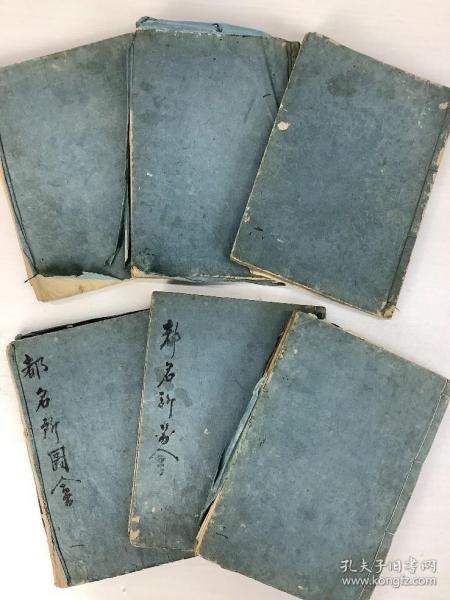 都名所圖會
一
都名所圖會
孔夫子旧书网
www.kongfz.com